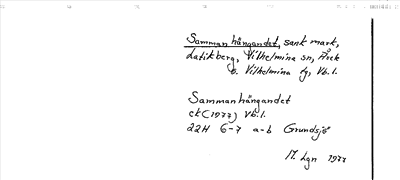 Sammanhängandet, sank mark,
Latikberg, Vilhelmina sn, Åsele
o. Vilhelmina tg, Vb.l.
Sammanhängandet
ek (1977) Vb.l.
22H 6-7 a-b Grundsjö
M. Lgn 1977